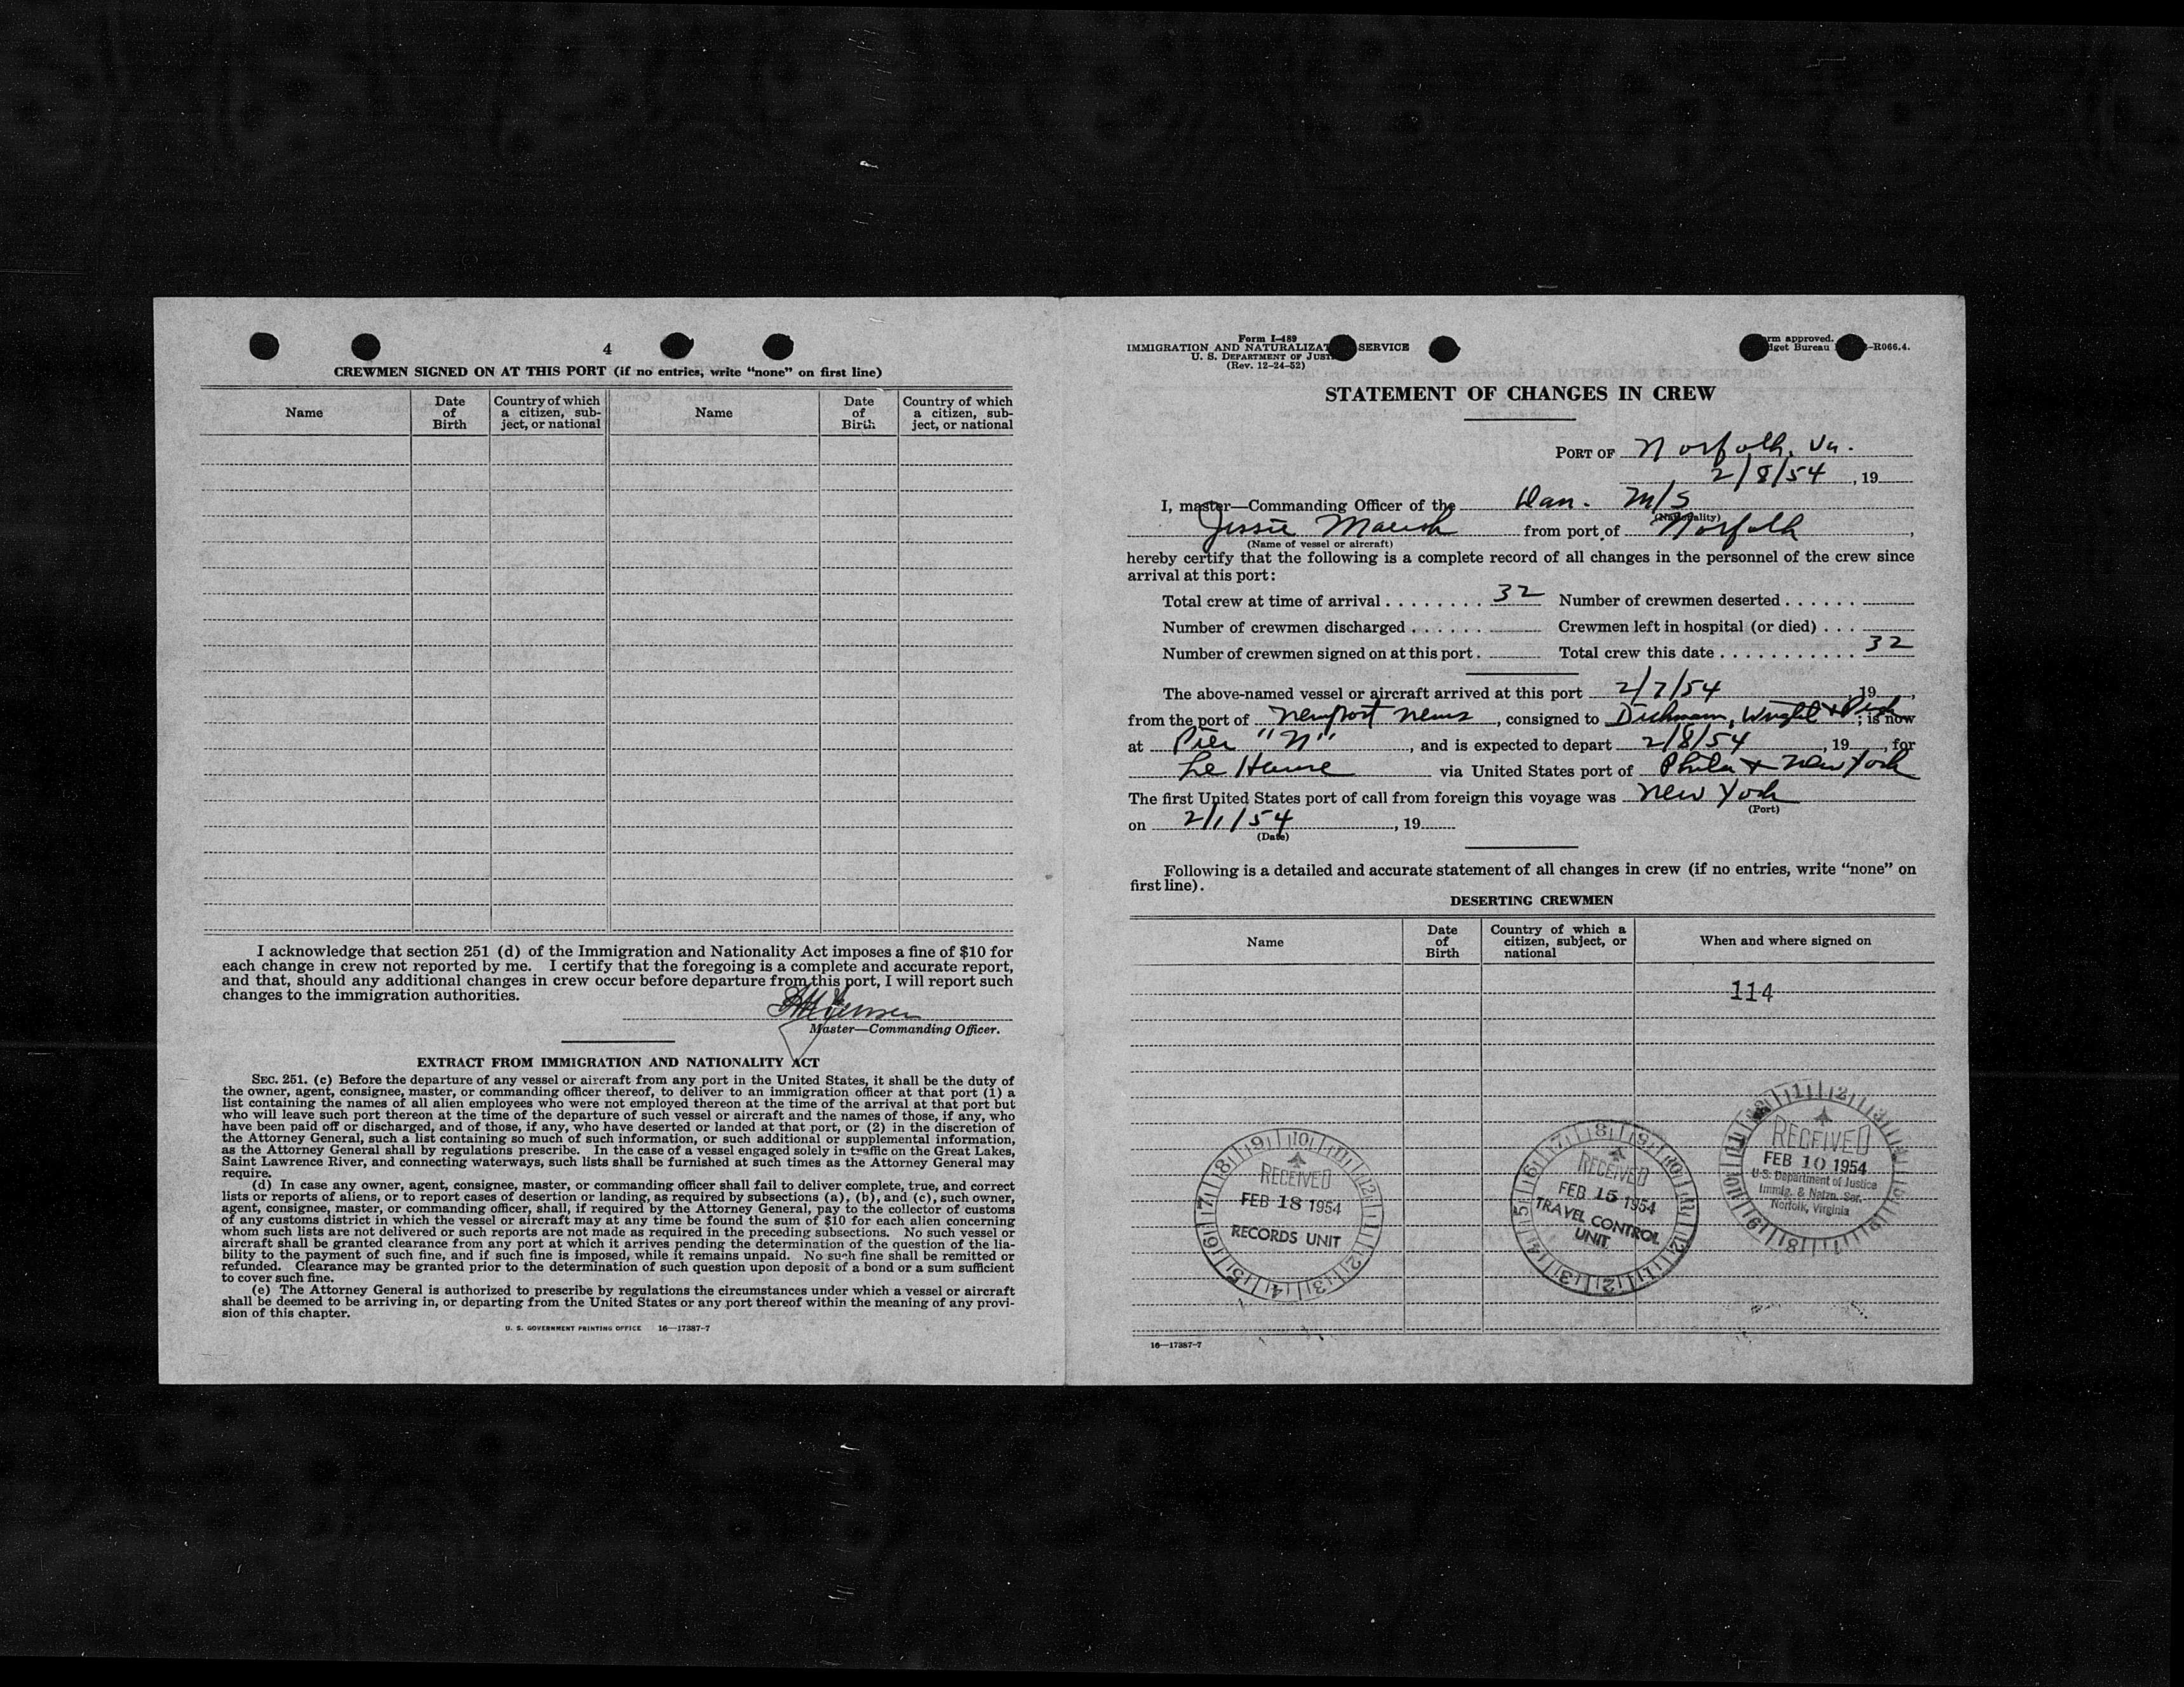 4
CREWMEN SIGNED ON AT THIS PORT (if no entries, write "none" on first line)
Name
Date of Birth
Country of which a citizen, subject, or national
Name
Date of Birth
Country of which a citizen, subject, or national
I acknowledge that section 251 (d) of the Immigration and Nationality Act imposes a fine of $10 for
each change in crew not reported by me. I certify that the foregoing is a complete and accurate report,
and that, should any additional changes in crew occur before departure from this port, I will report such
changes to the immigration authorities.
Master—Commanding Officer.
EXTRACT FROM IMMIGRATION AND NATIONALITY ACT
SEC. 251. (c) Before the departure of any vessel or aircraft from any port in the United States, it shall be the duty of
the owner, agent, consignee, master, or commanding officer thereof, to deliver to an immigration officer at that port (1) a
list containing the names of all alien employees who were not employed thereon at the time of the arrival at that port but
who will leave such port thereon at the time of the departure of such vessel or aircraft and the names of those, if any, who
have been paid off or discharged, and of those, if any, who have deserted or landed at that port, or (2) in the discretion of
the Attorney General, such a list containing so much of such information, or such additional or supplemental information,
as the Attorney General shall by regulations prescribe. In the case of a vessel engaged solely in traffic on the Great Lakes,
Saint Lawrence River, and connecting waterways, such lists shall be furnished at such times as the Attorney General may
require.
(d) In case any owner, agent, consignee, master, or commanding officer shall fail to deliver complete, true, and correct
lists or reports of aliens, or to report cases of desertion or landing, as required by subsections (a), (b), and (c), such owner,
agent, consignee, master, or commanding officer, shall, if required by the Attorney General, pay to the collector of customs
of any customs district in which the vessel or aircraft may at any time be found the sum of $10 for each alien concerning
whom such lists are not delivered or such reports are not made as required in the preceding subsections. No such vessel or
aircraft shall be granted clearance from any port at which it arrives pending the determination of the question of the lia-
bility to the payment of such fine, and if such fine is imposed, while it remains unpaid. No such fine shall be remitted or
refunded. Clearance may be granted prior to the determination of such question upon deposit of a bond or a sum sufficient
to cover such fine.
(e) The Attorney General is authorized to prescribe by regulations the circumstances under which a vessel or aircraft
shall be deemed to be arriving in, or departing from the United States or any port thereof within the meaning of any provi-
sion of this chapter.
U. S. GOVERNMENT PRINTING OFFICE 16—17387-7
Form I-489
IMMIGRATION AND NATURALIZAT SERVICE
U. S. DEPARTMENT OF JUST
(Rev. 12-24-52)
rm approved.
dget Bureau -R066.4.
STATEMENT OF CHANGES IN CREW
PORT OF Norfolk, Va.
2/8/54, 19
I, master—Commanding Officer of the Dan. M/S
(Nationality)
Jessie Maersk from port of Norfolk,
(Name of vessel or aircraft)
hereby certify that the following is a complete record of all changes in the personnel of the crew since
arrival at this port:
Total crew at time of arrival 32 Number of crewmen deserted
Number of crewmen discharged Crewmen left in hospital (or died)
Number of crewmen signed on at this port. Total crew this date 32
The above-named vessel or aircraft arrived at this port 2/7/54, 19,
from the port of Newport News, consigned to Dichmann, Wright & Pugh; is now
at Pier "N", and is expected to depart 2/8/54, 19, for
Le Havre via United States port of Phila & New York
The first United States port of call from foreign this voyage was New York
(Port)
on 2/1/54, 19
(Date)
Following is a detailed and accurate statement of all changes in crew (if no entries, write "none" on
first line).
DESERTING CREWMEN
Name
Date of Birth
Country of which a citizen, subject, or national
When and where signed on
114
RECEIVED
FEB 18 1954
RECORDS UNIT
RECEIVED
FEB 15 1954
TRAVEL CONTROL
UNIT
RECEIVED
FEB 10 1954
U.S. Department of Justice
Immig. & Natzn. Ser.
Norfolk, Virginia
16—17387-7